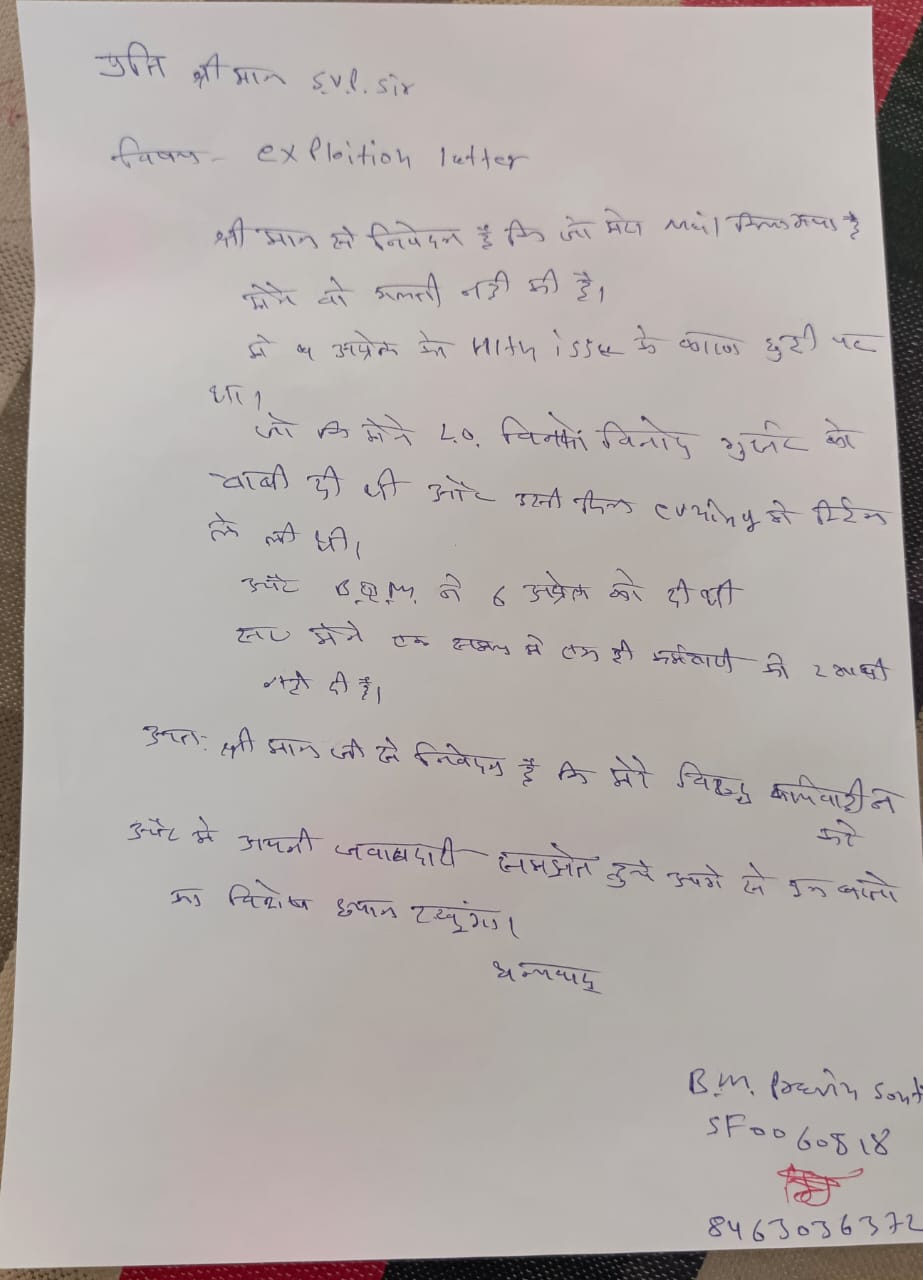 प्रति श्री मान S.V.P. Sir
विषय - exploition letter
श्री मान से निवेदन है कि जो मेरा किया गया है
मेने वो गलती नही की है।
मे 4 अप्रेल को Hlth issue के कारण छुटी पर
था।
जो कि मेने L.O. विनोद गुर्जर को
चाबी दी थी और उसी दिन evening मे रिर्टन
ले ली थी।
और B.Q.M. ने 6 अप्रेल को दी थी
सर मेने एक समय मे एक ही कर्मचारी को 2 चाबी
नही दी है।
अतः श्री मान जी से निवेदन है कि मेरे विरुद्ध कार्यवाही न
करे
और मे अपनी जवाबदारी समझते हुये आगे से इन बातो
का विशेष ध्यान रखूंगा।
धन्यवाद
B.M. Pravin
SF0060818
8463036372